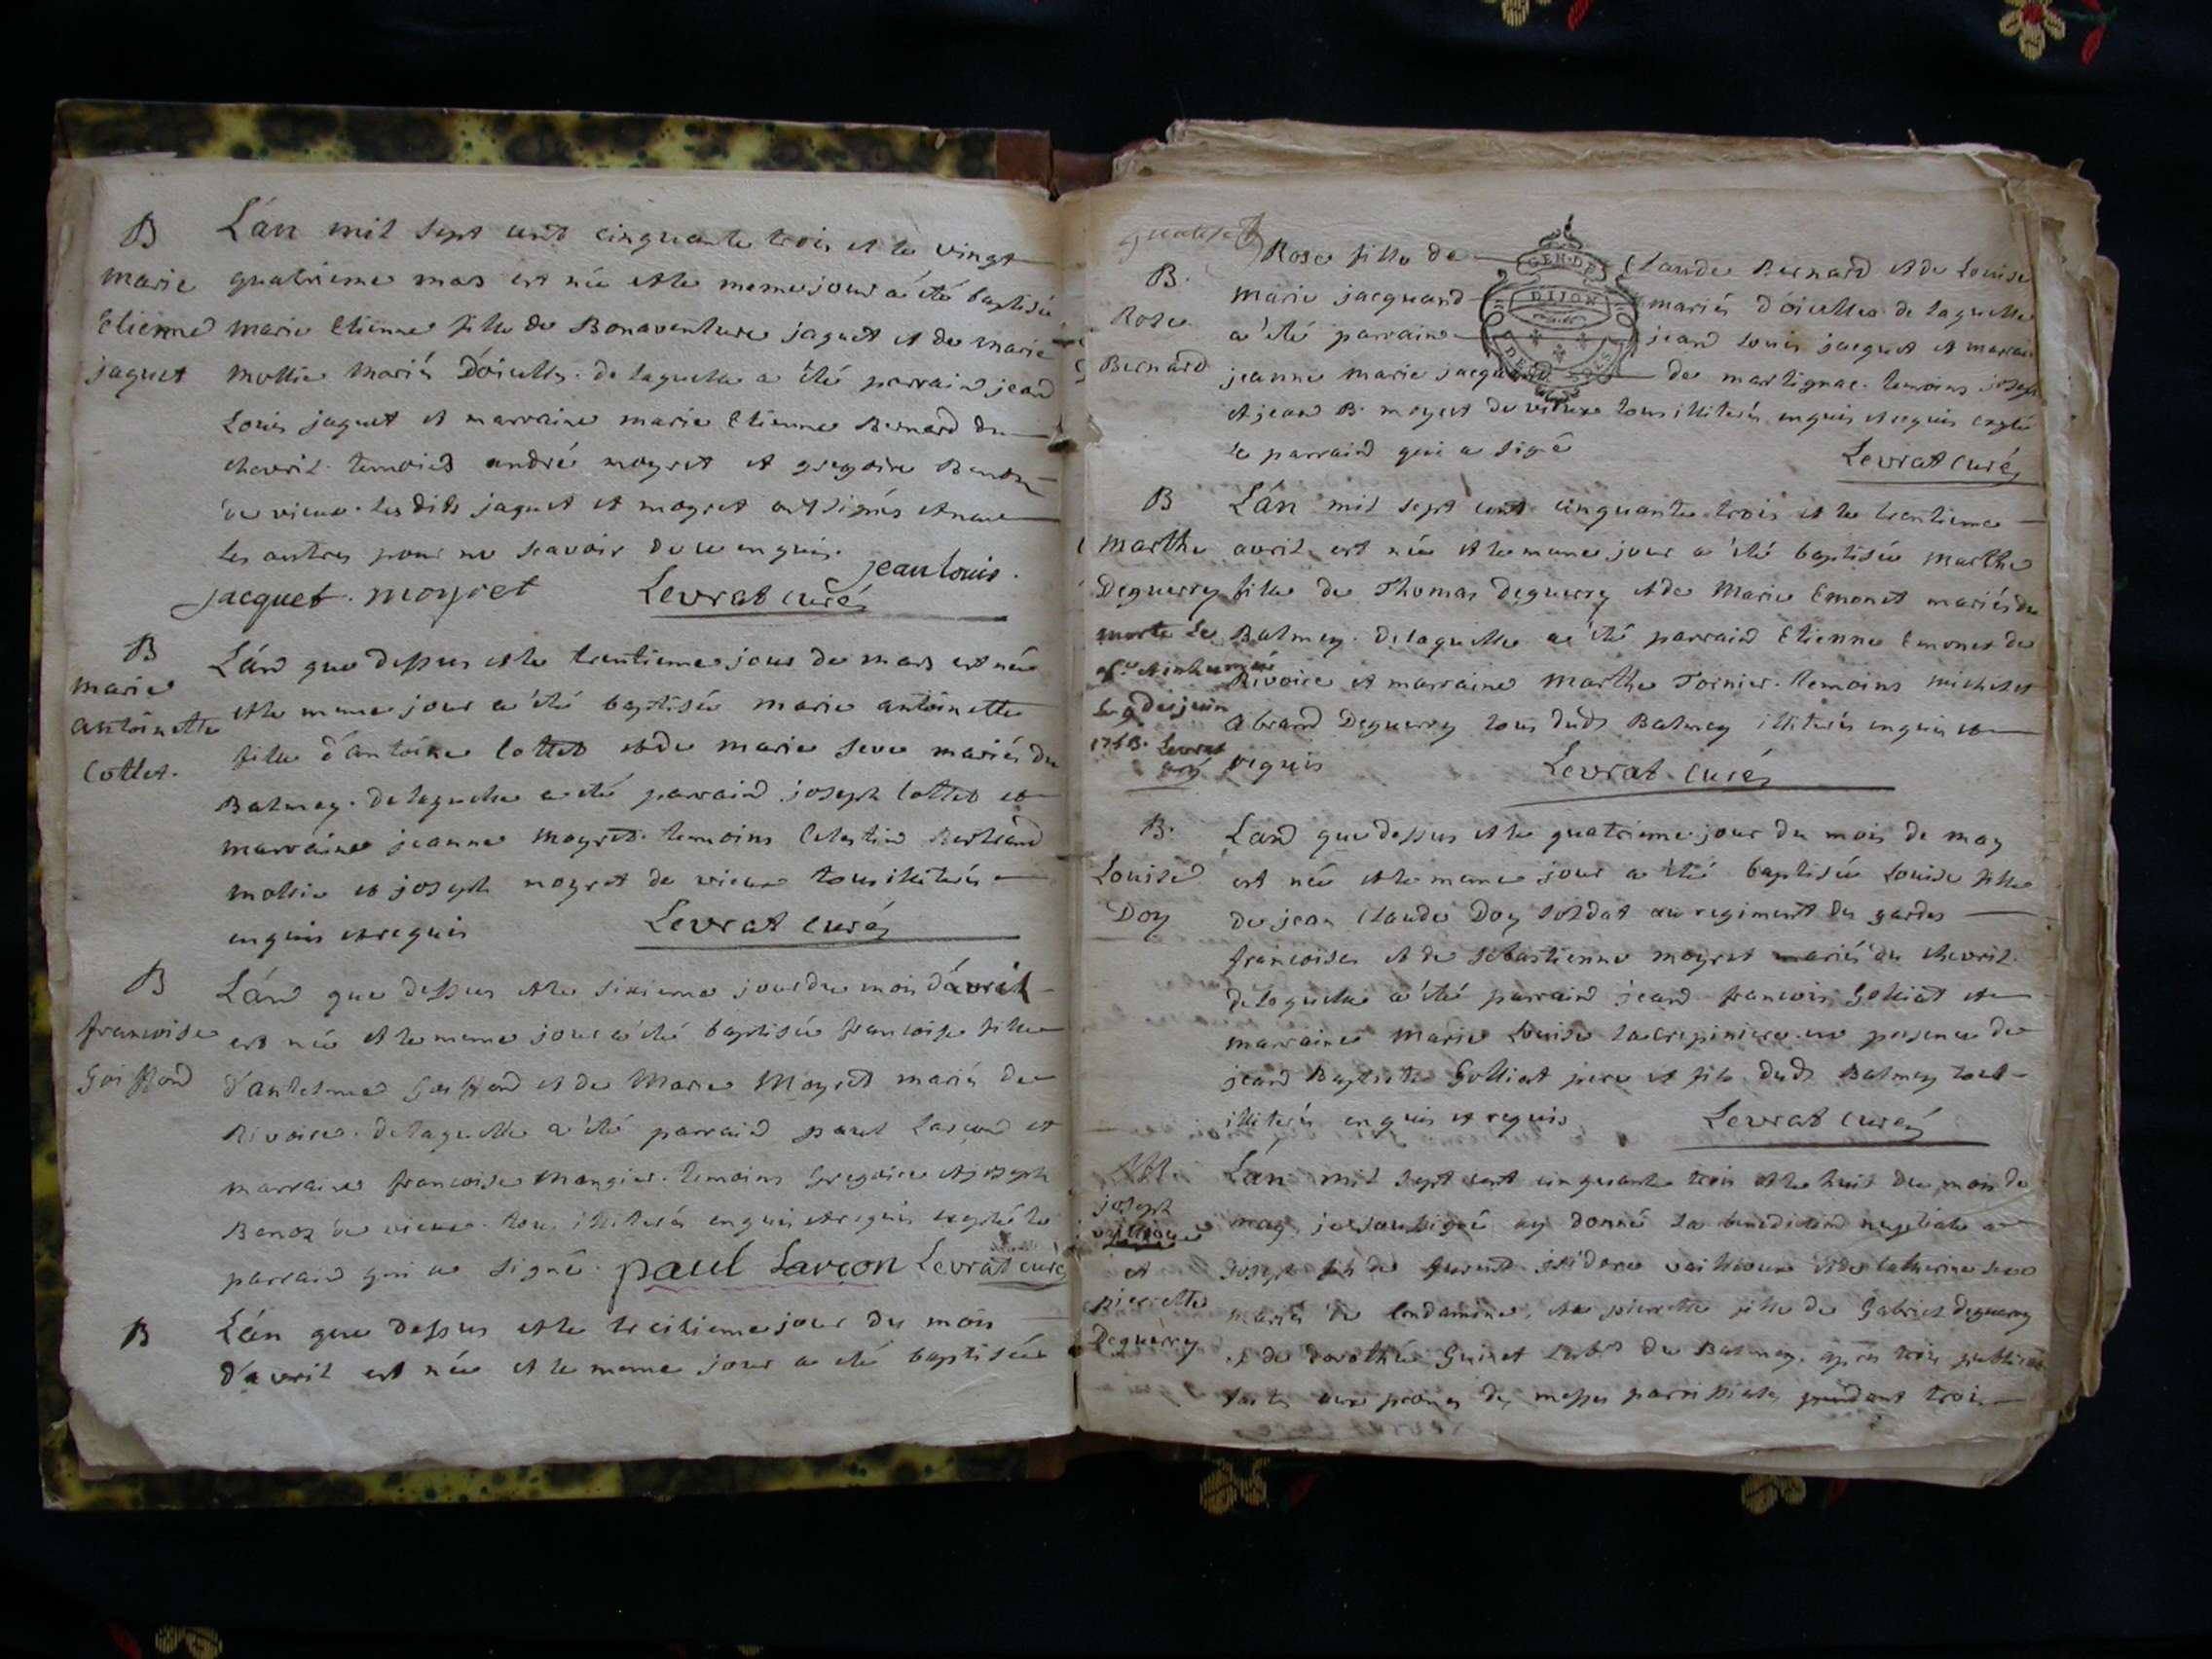 B
Marie
Etienne
jaquet
Lán mil sept cent cinquante trois et le vingt
quatrieme mars est née et le meme jour a été baptisée
Marie Etienne fille de Bonaventure jaquet et de marie
Mollie mariés D'óiculles. de laquelle a été parrain jean
Louis jaquet et marraine marie Etienne Bernard du
chevril. temoins andré moyret et gregoire
de vieux. les dits jaquet et moyret ont signés et non
les autres pour ne scavoir de ce enquis.
jean louis
jacquet. moyret Levrat curé
B
Marie
antoinette
Cottet.
Lán que dessus et le trentieme jour de mars est née
et le meme jour a été baptisée marie antoinette
fille d'antoine Cottet et de marie seve mariés du
Balmay. de laquelle a été parrain joseph Cottet et
marraine jeanne moyret. temoins Celestin Bertrand
mollie et joseph moyret de vieux tous illiterés
enquis et requis Levrat curé
B
francoise
Goiffond
Lán que dessus et le sixieme jour du mois d'avril
est née et le meme jour a été baptisée francoise fille
d'antelme Goiffond et de Marie Moyret mariés de
Rivoire. de laquelle a été parrain paul Larcond et
marraine francoise Mangier. temoins Gregoire et joseph
Benoz de vieux. tous illiterés enquis et requis excepté le
parrain qui a signé. paul Larcon Levrat curé
B
Lán que dessus et le treizieme jour du mois
d'avril est née et le meme jour a été baptisée
B.
Rose
Bernard
Rose fille de Claude Bernard et de Louise
GEN. DE DIJON
Marie jacquand mariés d'óiculles de laquelle
a été parrain jean Louis jacquet et marraine
jeanne Marie jacquand de martignac. temoins joseph
et jean B. moyret de vieux tous illiterés enquis et requis excepté
le parrain qui a signé
Levrat curé
B
Marthe
Deguerry
morte le
et inhumée
le 9 de juin
Levrat
curé
Lán mil sept cent cinquante trois et le trentieme
avril est née et le meme jour a été baptisée Marthe
fille de Thomas Deguerry et de Marie Emonet mariés du
Balmey. de laquelle a été parrain Etienne Emonet de
Rivoire et marraine Marthe Tornier. temoins michel et
abrand Deguerry tous dudt Balmey illiterés enquis et
requis Levrat. curé
B.
Louise
Doy
Lán que dessus et le quatrieme jour du mois de may
est née et le meme jour a été baptisée Louise fille
de jean Claude Doy soldat au regiment des gardes
francoises et de sebastienne moyret mariés du chevril.
de laquelle a été parrain jean francois Golliat et
marraine Marie Louise en presence de
jean Baptiste Golliat pere et fils dudt Balmey tous
illiterés enquis et requis Levrat curé
joseph
et
pierrette
Deguerry
Lán mil sept cent cinquante trois et le huit du mois de
may, je soussigné ay donné la benediction nuptiale a
joseph fils de isidore et de Catherine seve
mariés de Condamine, et a pierrette fille de Gabriel Deguerry
et de dorothée Guinet du Balmay. apres trois publications
faites aux prones des messes parroissiales pendant trois